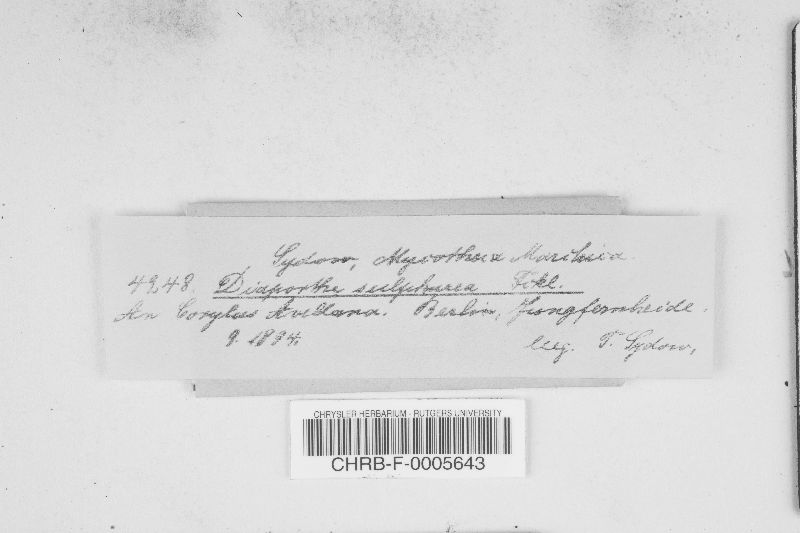 Sydow, Mycotheca Marchica.
4948. Diaporthe sulphurea Fckl.
An Corylus Avellana. Berlin, Jungfernheide.
9. 1894. leg. P. Sydow.
CHRYSLER HERBARIUM - RUTGERS UNIVERSITY
CHRB-F-0005643